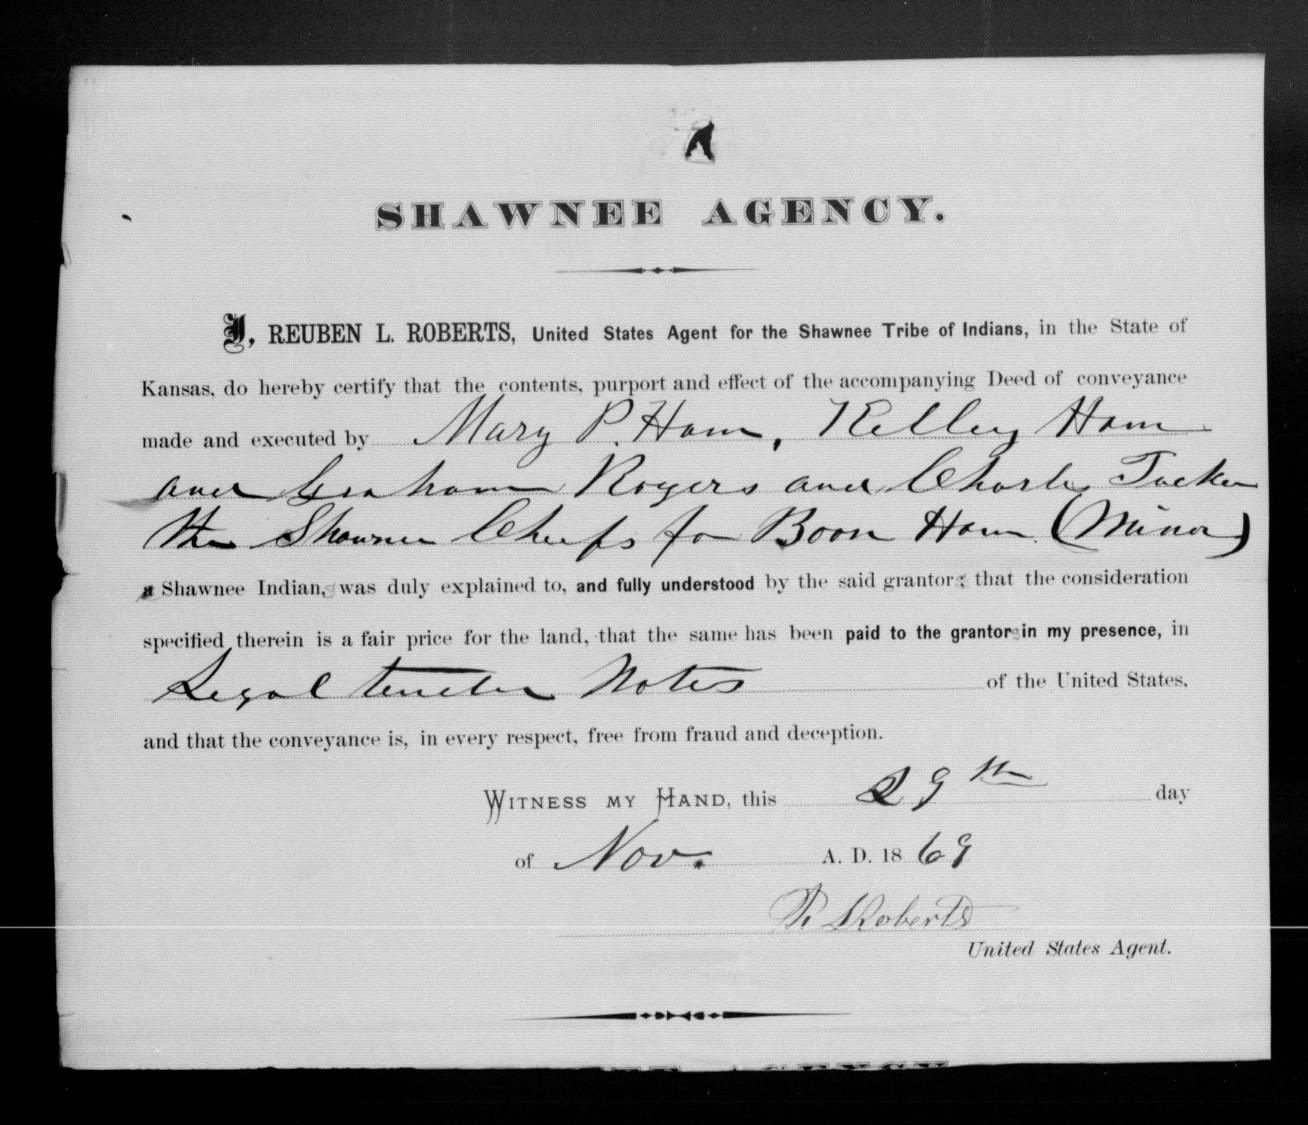 SHAWNEE AGENCY.
I, REUBEN L. ROBERTS, United States Agent for the Shawnee Tribe of Indians, in the State of
Kansas, do hereby certify that the contents, purport and effect of the accompanying Deed of conveyance
made and executed by Mary P. Ham, Kelley Ham
and Graham Rogers and Charles Tucker
the Shawnee Chiefs for Boon Ham (Minor)
a Shawnee Indian, was duly explained to, and fully understood by the said grantors; that the consideration
specified therein is a fair price for the land, that the same has been paid to the grantors in my presence, in
Legal tender Notes of the United States,
and that the conveyance is, in every respect, free from fraud and deception.
WITNESS MY HAND, this 29th day
of Nov. A. D. 1869
R L Roberts
United States Agent.